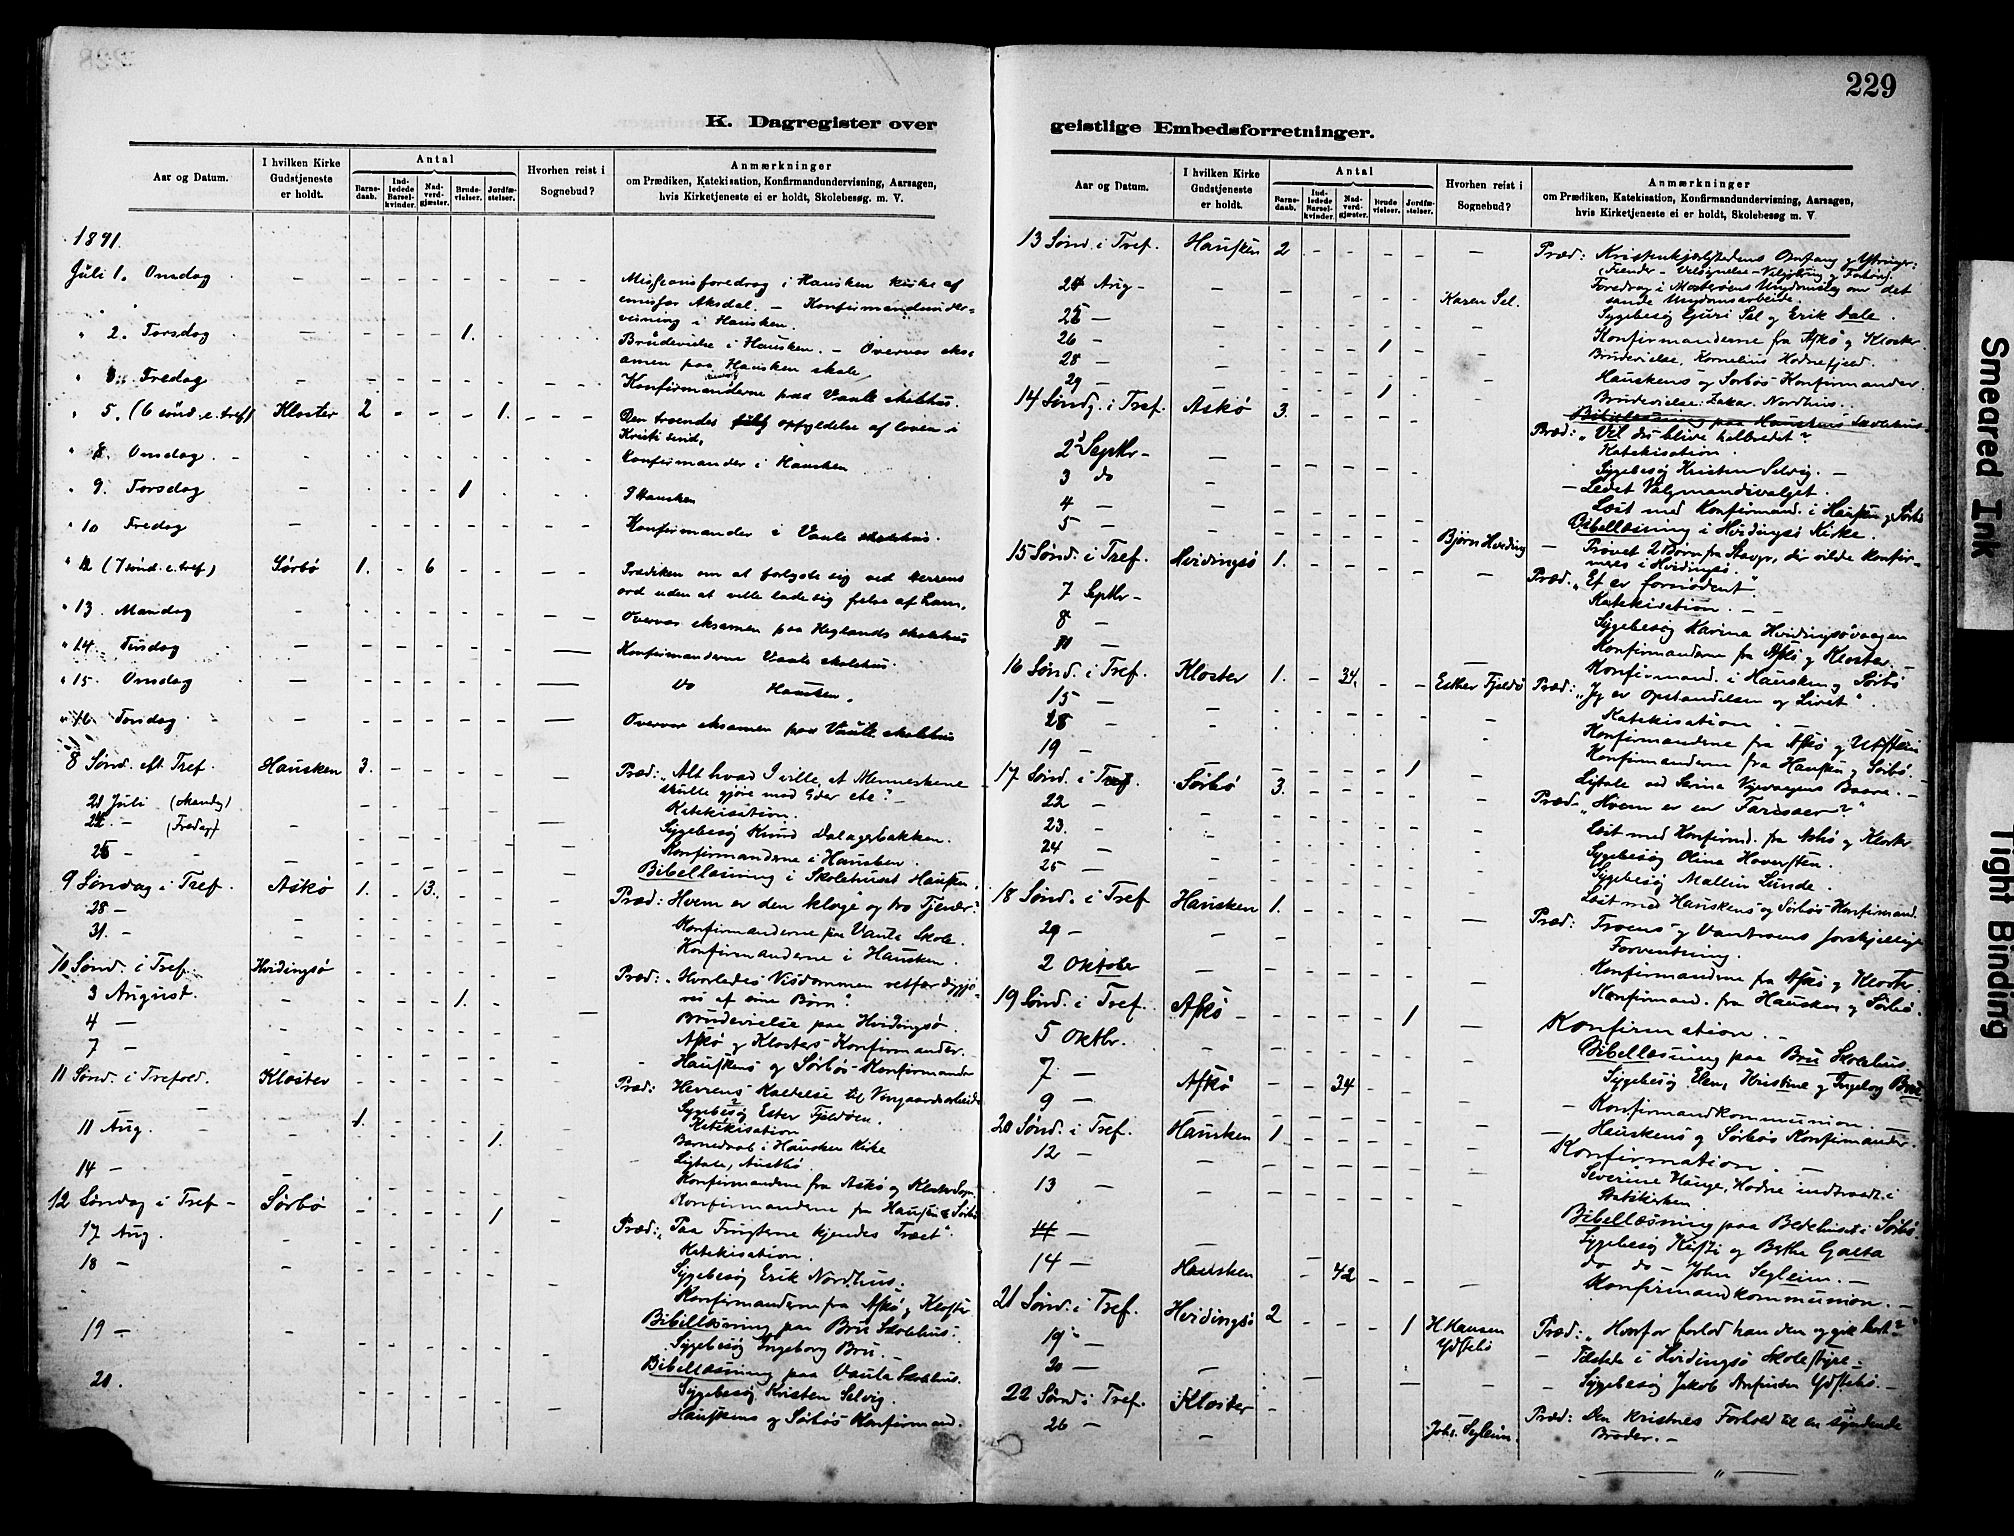 228
K. Dagregister over
Aar og Datum.
I hvilken Kirke Gudstjeneste er holdt.
Antal
Barne-daab.
Ind-ledede Barsel-kvinder.
Nad-verd-gjæster.
Brude-vielser.
Jordfæ-stelser.
Hvorhen reist i Sognebud?
Anmærkninger
om Prædiken, Katekisation, Konfirmandundervisning, Aarsagen,
hvis Kirketjeneste ei er holdt, Skolebesøg. m. V.
1891
Juli 1. Onsdag - - - - - - - Missionsforedrag i Hausken kirke af
emissær Aksdal. - Konfirmandunder-
visning i Hausken.
" 2. Torsdag - - - - 1. - - Brudevielse i Hausken. - Overvar eks-
amen paa Hausken skole
" Fredag - - - - - - - Konfirmanderne paa Vaule skolehus.
" 5. (6 sønd. e. tref) Kloster 2 - - - 1. - - Den troendes opfyldelse af loven i
Kristi sind.
" 8. Onsdag - - - - - - - Konfirmander i Hausken
" 9. Torsdag - - - - 1 - - - I Hausken
" 10 Fredag - - - - - - - Konfirmander i Vaule skolehus.
" 12 (7 sønd. e. tref.) Sørbø 1. - 6 - - - Prædiken om at forlyste sig ved Herrens
ord uden at ville lade sig frelse af Ham.
" 13. Mandag - - - - - - - Overvar eksamen paa Heglands skolehus
" 14. Tirsdag - - - - - - Konfirmanderne Vaule skolehus.
" 15. Onsdag - - - - - - Do Hausken.
" 16. Torsdag - - - - - - Overvar eksamen paa Vaule skolehus
8 Sønd. eft. Tref. Hausken 3. - - - - - Præd: "Alt hvad I ville, at Menneskene
skulle gjøre mod Eder etc" -
Katekisation.
21 Juli (Mandg) - Sygebesøg Knud Dalagerbakken.
24. - (Fredag) - Konfirmanderne i Hausken.
25 - - Bibellæsning i Skolehuset Hausken.
9 Søndag i Tref. Askø 1. - 13. - - - Præd: Hvem er den kloge og tro Tjener?
28 - - Konfirmanderne paa Vaule Skole.
31. - - Konfirmanderne i Hausken.
10 Sønd. i Tref. Hvidingsø - - - - - - Præd: "Hvorledes Visdommen retfærdiggjø-
res af sine Børn".
3 August. - - - - 1. - Brudevielse paa Hvidingsø.
4 - - Askø og Klosters Konfirmander.
7 - - Hauskens og Sørbøs Konfirmander
11 Sønd. i Trefold. Kloster - - - - - - Præd: Herrens Kaldelse til Vingaardsarbeide
Sygebesøg Ester Fjeldøen.
Katekisation
11 Aug. - 1. - Barnedaab i Hausken Kirke
- 1. Ligtale, Austbø.
14 - Konfirmanderne fra Askø og Kloster Sogn.
Konfirmanderne fra Hausken & Sørbø
12 Søndag i Tref - Sørbø - - - - 1 - Præd: "Paa Frugterne kjendes Træet".
Katekisation.
17 Aug. - Sygebesøg Erik Nordhus.
18 - - Konfirmanderne fra Askø og Kloster
Bibellæsning paa Bru Skolehus.
19 - - Sygebesøg Ingeborg Bru. -
Bibellæsning paa Vaula Skolehus.
20. - Sygebesøg Kristen Selvig.
Hauskens og Sørbøs Konfirmand.
229
geistlige Embedsforretninger.
Aar og Datum.
I hvilken Kirke Gudstjeneste er holdt.
Antal
Barne-daab.
Ind-ledede Barsel-kvinder.
Nad-verd-gjæster.
Brude-vielser.
Jordfæ-stelser.
Hvorhen reist i Sognebud?
Anmærkninger
om Prædiken, Katekisation, Konfirmandundervisning, Aarsagen,
hvis Kirketjeneste ei er holdt, Skolebesøg m. V.
13 Sønd. i Tref. Hausken 2 - - - - - Præd: Kristenkjærlighedens Omfang og Ytringer:
Fiender - Velsignelse - Velgjøring og Forbøn.
24 Aug - - - - - - Karen Sel. Foredrag i Mosterøens Ungdomslag om det
sande Ungdomsarbeide.
25 - - Sygebesøg Guri Sel og Erik Dale.
26 - - Konfirmanderne fra Askø og Kloster.
28 - - 1 - Brudevielse. Kornelius Hodnefjeld.
29 - - Hauskens og Sørbøs Konfirmander.
1 Brudevielse: Zakar. Nordhus.
14 Søndg. i Tref. Askø 3. - - - - Bibellæsning paa Hauskens Skolehus.
Præd: "Vil du blive helbredet"?
Katekisation.
2 Septbr - - Sygebesøg Kristen Selvig. -
3 do - - Ledet Valgmandsvalget.
4 - - Læst med Konfirmand. i Hausken og Sørbø
5 - - Bibellæsning i Hvidingsø Kirke.
Bjørn Hviding - Prøvet 2 Børn fra Stavgr, der vilde konfir-
meres i Hvidingsø.
15 Sønd. i Tref. Hvidingsø 1. - - - - - Præd. "Et er fornødent".
Katekisation. - -
7 Septbr - - Sygebesøg Karina Hvidingsøvaagen
8 - - Konfirmanderne fra Askø og Kloster. -
11 - Konfirmand. i Hausken og Sørbø
16 Sønd. i Tref. Kloster 1. - 34. - - Esther Fjeldø Præd: "Jeg er Opstandelsen og Livet".
Katekisation
15 - - Konfirmanderne fra Askø og Utstein
18 - - Konfirmanderne fra Hausken og Sørbø.
19 - - 1 Ligtale ved Serina Vaagens Baare. -
17 Sønd. i Tref. Sørbø 3. - - - - Præd. "Hvem er en Farisæer?"
22 - - Læst med Konfirmd. fra Askø og Kloster
23. - - Sygebesøg Olina Haversten.
24 - - Sygebesøg Mallin Lunde.
25 - - Læst med Hauskens og Sørbøs Konfirmand.
18 Sønd. i Tref Hausken 1. - - - - - Præd: Troens og Vantroens forskjellige
Forventning.
29 - - Konfirmanderne fra Askø og Kloster.
2 Oktober - Konfirmand. fra Hausken og Sørbø.
19 Sønd. i Tref. Askø - - - - 1 - Konfirmation. -
5 Oktbr. - Bibellæsning paa Bru Skolehus
7 - Sygebesøg Elen, Kristine og Ingeborg Bru.
Askø - - 34 - - Konfirmandkommunion. -
9 - - Hauskens og Sørbøs Konfirmander.
20 Sønd. i Tref. Hausken 1 - - - - - Konfirmation. -
12 - - Severine Hauge, Hodne indtraadt i
Statskirken.
13 - - Bibellæsning paa Bedehuset i Sørbø.
Sygebesøg Kisti og Berthe Galta
14 - - do do - John Segleim. -
14 - Hausken - 42 - - - Konfirmandkommunion. -
21 Sønd. i Tref. Hvidingsø 2 - - - 1 H. Hansen Ydstebø Præd: "Hvorfor forlod han den og gik bort?"
19 - - Tilstede i Hvidingsø Skolestyre -
20 - - Sygebesøg Jakob Anfinsen Ydstebø. -
22 Sønd i Tref. Kloster - Johs. Segleim. Præd: Den Kristnes Forhold til en syndende
Broder. -
26 - -
Smeared Ink
Tight Binding